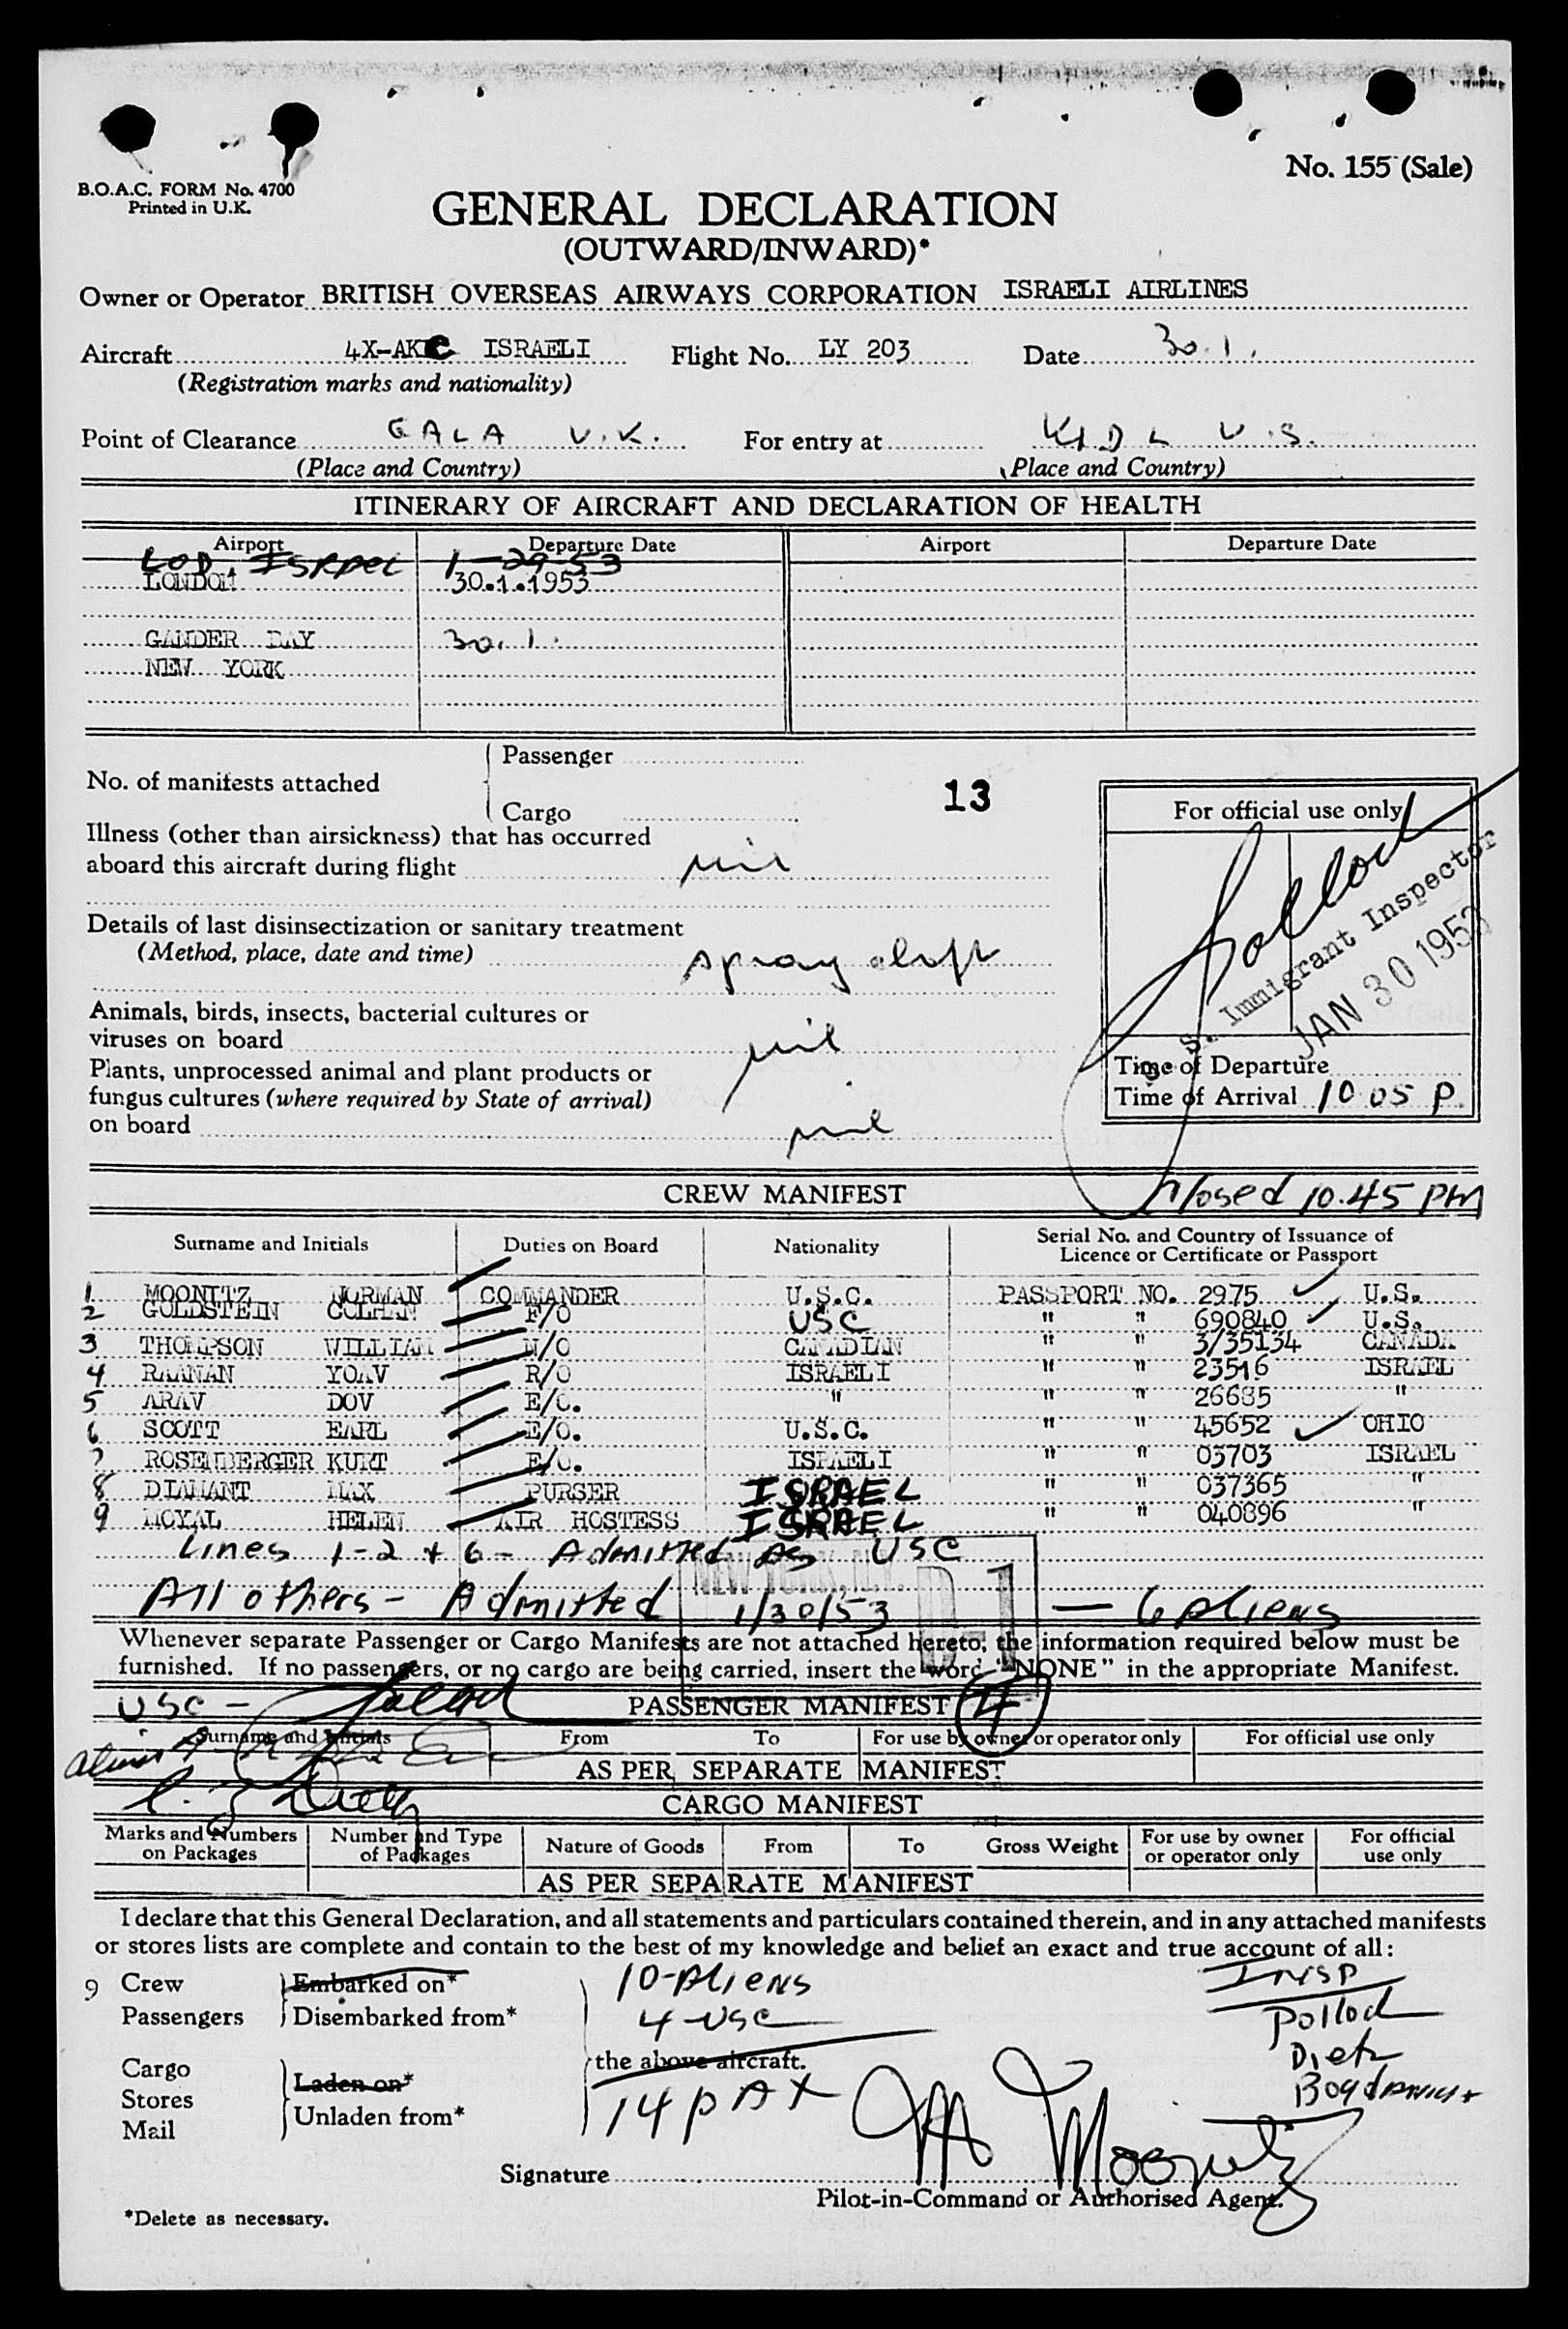 No. 155 (Sale)
B.O.A.C. FORM No. 4700
Printed in U.K.
GENERAL DECLARATION
(OUTWARD/INWARD)*
Owner or Operator BRITISH OVERSEAS AIRWAYS CORPORATION ISRAELI AIRLINES
Aircraft 4X-AKC ISRAELI Flight No. LY 203 Date 30.1.
(Registration marks and nationality)
Point of Clearance GALA U.K. For entry at KIDL U.S.
(Place and Country) (Place and Country)
ITINERARY OF AIRCRAFT AND DECLARATION OF HEALTH
Airport Departure Date Airport Departure Date
LOD, ISRAEL 1-29-53
LONDON 30.1.1953
GANDER BAY 30.1.
NEW YORK
No. of manifests attached
Passenger
Cargo
13
For official use only
Illness (other than airsickness) that has occurred
aboard this aircraft during flight nil
Pollock
U. S. Immigrant Inspector
JAN 30 1953
Details of last disinsectization or sanitary treatment
(Method, place, date and time) spray aloft
Animals, birds, insects, bacterial cultures or
viruses on board nil
Plants, unprocessed animal and plant products or
fungus cultures (where required by State of arrival)
on board nil
Time of Departure
Time of Arrival 10 05 P.
CREW MANIFEST
Closed 10.45 PM
Surname and Initials Duties on Board Nationality Serial No. and Country of Issuance of
Licence or Certificate or Passport
1 MOONITZ NORMAN COMMANDER U.S.C. PASSPORT NO. 2975 U.S.
2 GOLDSTEIN F/O USC " " 690840 U.S.
3 THOMPSON WILLIAM N/O CANADIAN " " 3/35134 CANADA
4 RAANAN YOAV R/O ISRAELI " " 23516 ISRAEL
5 ARAV DOV E/O. " " " 26685 "
6 SCOTT EARL E/O. U.S.C. " " 45652 OHIO
7 ROSENBERGER KURT E/O. ISRAELI " " 03703 ISRAEL
8 DIAMANT MAX PURSER ISRAEL " " 037365 "
9 MOYAL HELEN AIR HOSTESS ISRAEL " " 040896 "
Lines 1-2 + 6 - Admitted as USC
NEW YORK, N.Y.
All others - Admitted 1/30/53 D-1 - 6 Aliens
Whenever separate Passenger or Cargo Manifests are not attached hereto, the information required below must be
furnished. If no passengers, or no cargo are being carried, insert the word "NONE" in the appropriate Manifest.
USC - PASSENGER MANIFEST 4
Surname and Initials From To For use by owner or operator only For official use only
AS PER SEPARATE MANIFEST
CARGO MANIFEST
Marks and Numbers
on Packages
Number and Type
of Packages
Nature of Goods From To Gross Weight
For use by owner
or operator only
For official
use only
AS PER SEPARATE MANIFEST
I declare that this General Declaration, and all statements and particulars contained therein, and in any attached manifests
or stores lists are complete and contain to the best of my knowledge and belief an exact and true account of all:
9 Crew Embarked on* 10-Aliens
Passengers Disembarked from* 4-USC
the above aircraft.
Cargo Laden on*
Stores Unladen from* 14 PAX
Mail
INSP
Pollock
Dietz
M Moonitz
Signature
Pilot-in-Command or Authorised Agent.
*Delete as necessary.